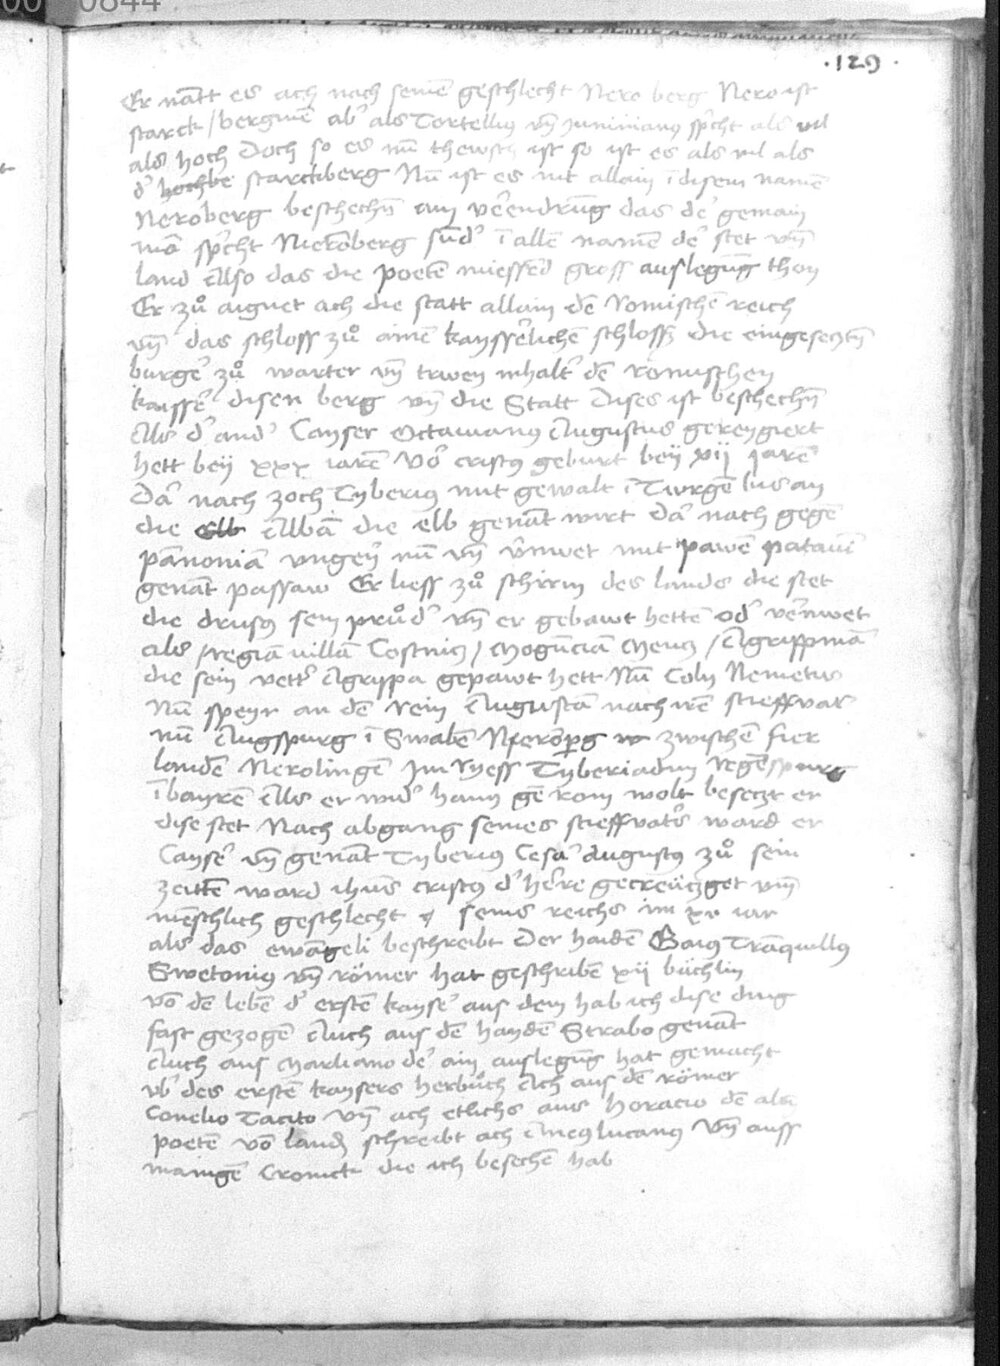 .129.
Er nātt es ach nach seinē geschlecht Nero berg Nero ist
starck / bergmē ab' als Tortellius vn̄ Juninianus sp'cht als vil
als hoch Doch so es nū thewsch ist so ist es als vil als
d' hochbe starckberg Nū ist es nit allain ī disem namē
Neroberg beschechn̄ ain verendrūg das de' gemain
mā sp'cht Nierōberg sūd' ī allē namē de' stet vn̄
land Also das die poetē miessēd gross auslegūg thon
Er zů aignet ach die statt allain dē Romischē reich
vn̄ das schloss zů ainē kaysserlichē schloss die eingesectzn̄
burge' zů warter vn̄ trwen inhalt' dē römischen
kaisse' disen berg vn̄ die Statt Dises ist beschechn̄
Als d' and' Cayser Octauianus Augustus gereygiert
hett bey xxx iarē Vo' cristus geburt bey xij jarē
Da' nach zoch Tyberius mit gewalt ī Turgē bis an
die Elb Albā die elb genāt wirt Da' nach gegē
pānoniā vnger nū vn̄ v'nwet mit pawē patauī
genāt passaw Er liess zů schirm des lands die stet
die drusus sein průd' vn̄ er gebawt hettē od' vernwet
als / regiā villā Costnitz / Mogūciā Mentz / Agrippinā
die sein vett' Agrippa gepawt hett Nū Coln Nemetus
Nū speyr an dē rein Augustā nach irē stieffvat'
nū Augspurg ī Swabē Nierōpg w zwischē fier
landē Nerolingē Im Ryess Tyberiadim regēspurg
ī bayrē Als er wid' haim gē rom wolt besectzt er
dise stet Nach abgang seines stieffvat's ward er
Cayse' vn̄ genāt Tyberius Cesa' Augustus zů sein
zeittē ward ihūs cristus d' he're gecreützget vm̄
mēschlich geschlecht seins reichs im xv iar
als das ewāgeli beschreibt Der haidē Gaius Trāquillus
Swetonius vn̄ römer hat geschribē xij büchlin
vō dē lebē d' erstē kayse' aus dem hab ich dise ding
fast gezogē Auch aus dē haydē Strabo genāt
Auch aus Marliano de' ain auslegūg hat gemacht
vb' des erstē kaysers herbůch Ach aus dē römer
Conelio Tacito vn̄ ach etlichs aus Horacio dē als
poetē vō land schreibt ach Aneus lucanus Vn̄ auss
maingē Cronick die ich besechē hab